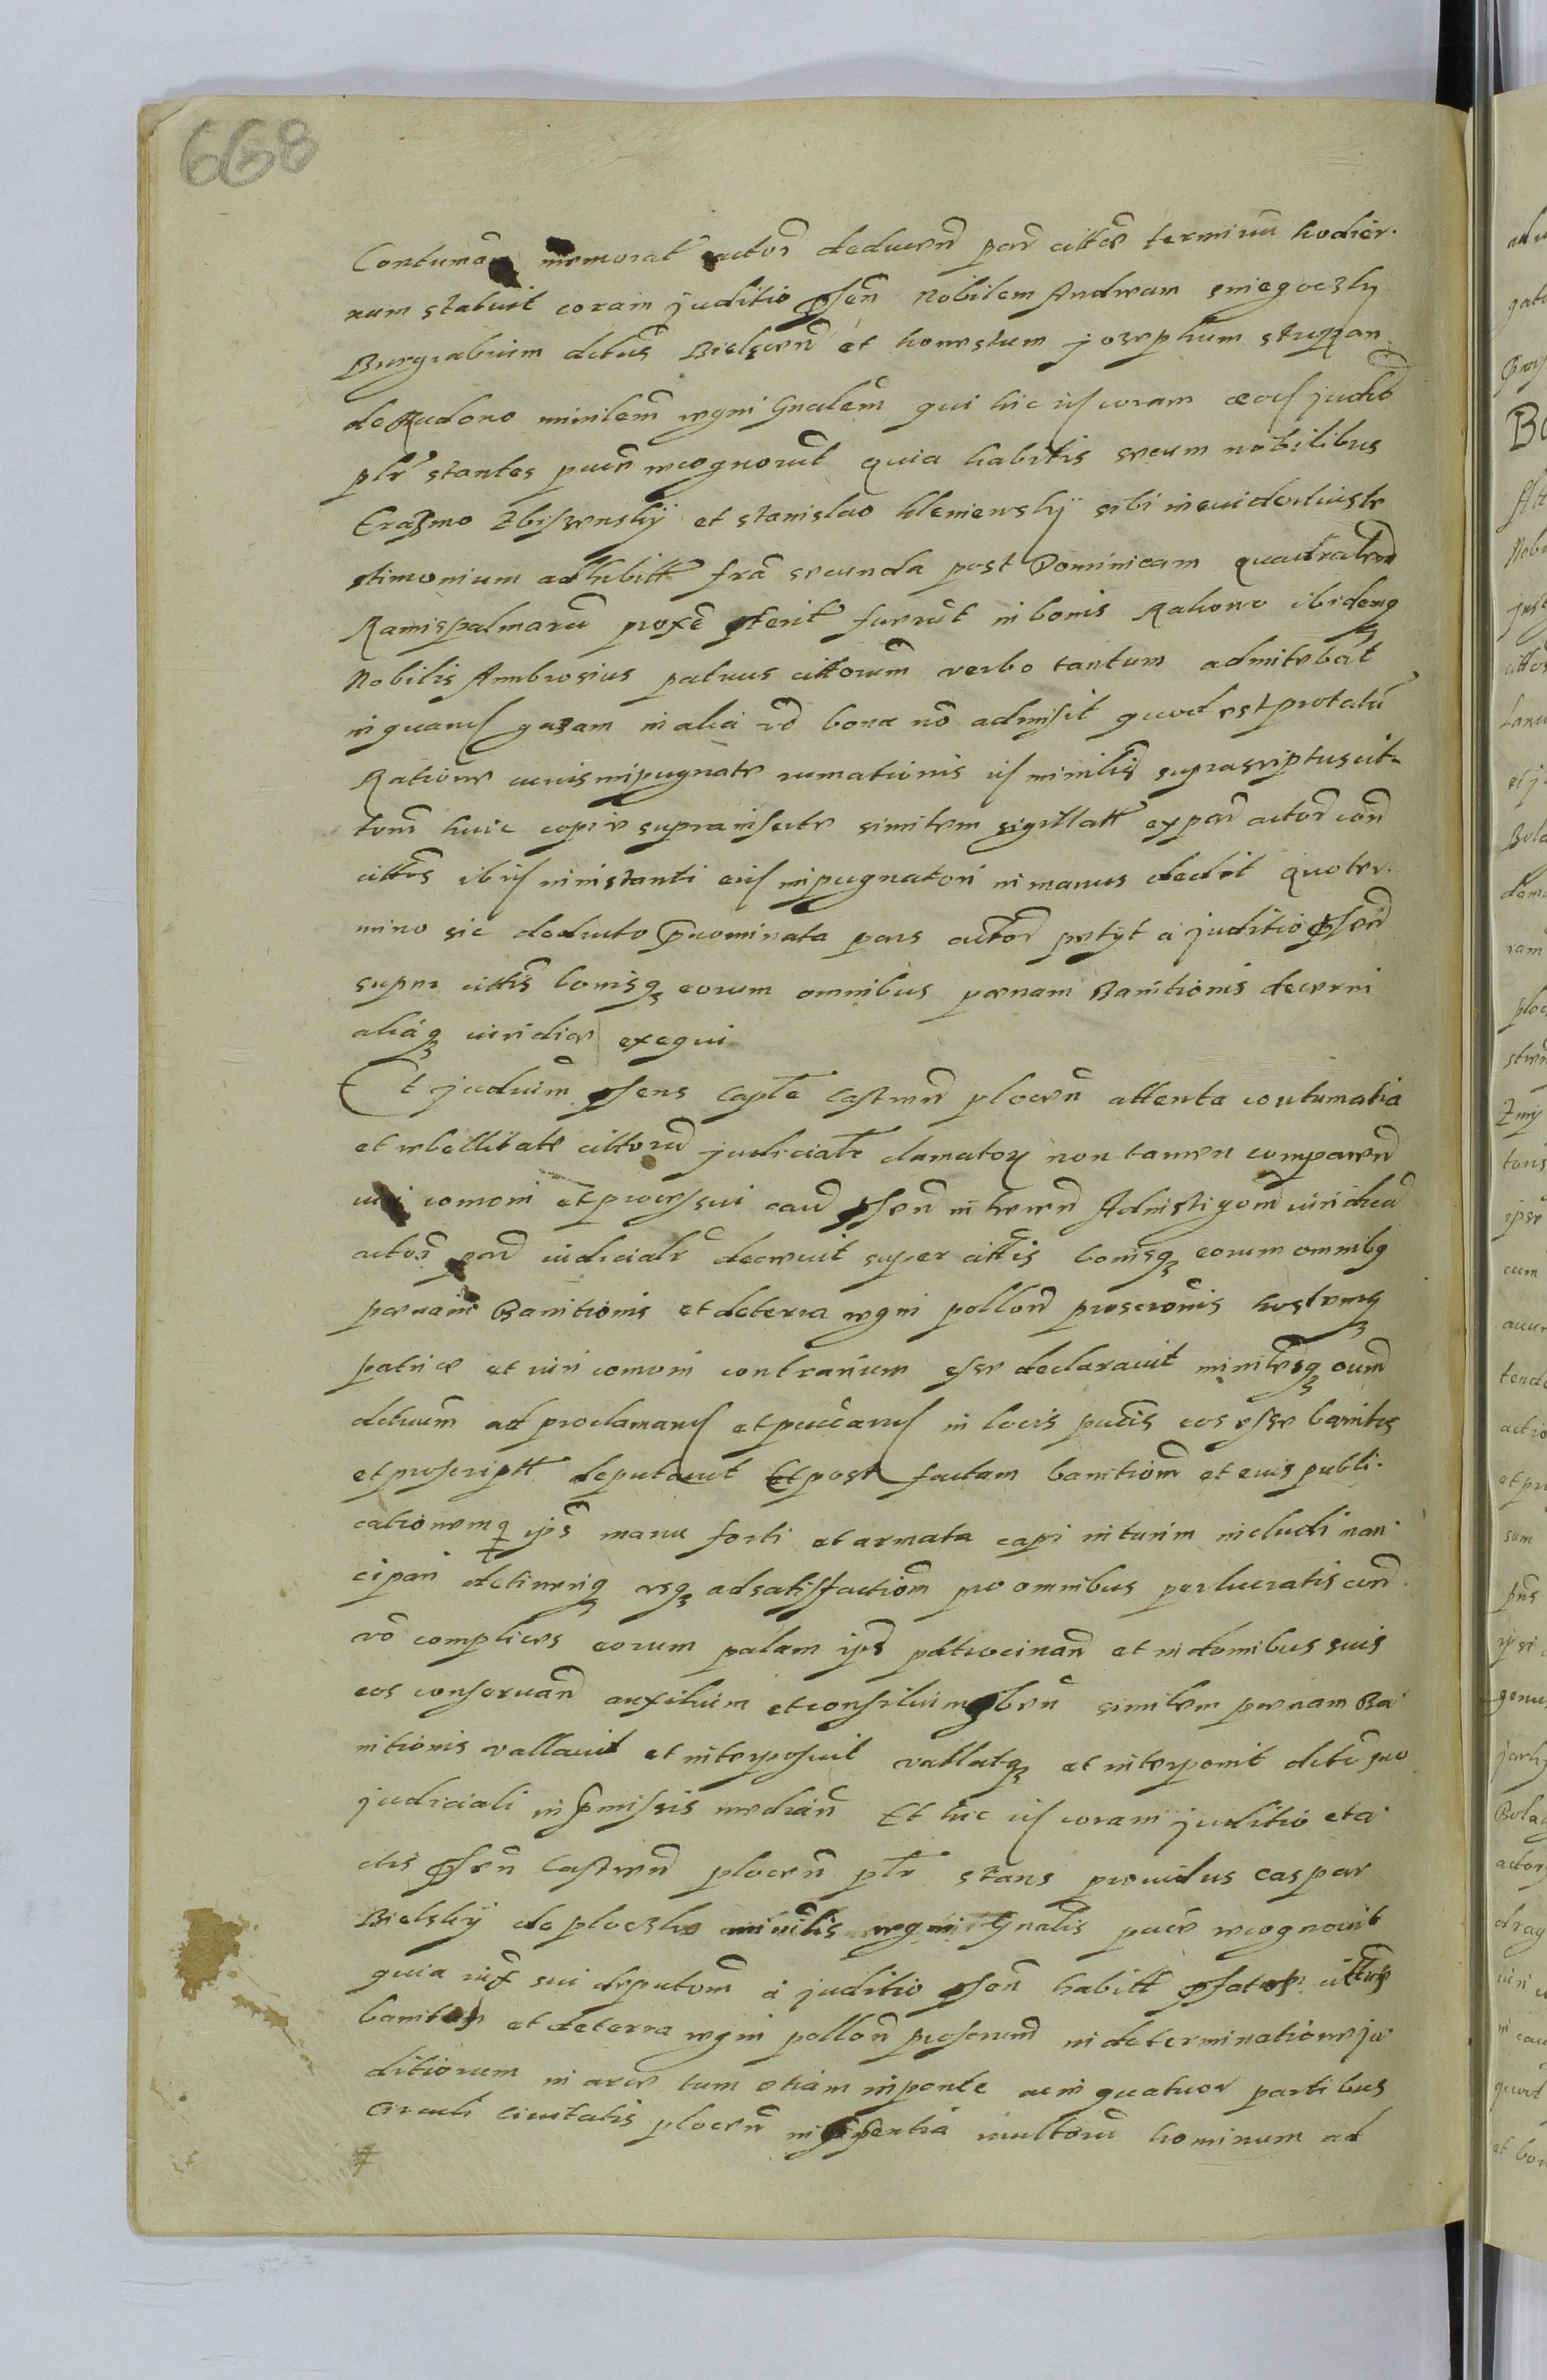 668
Contumā memorat actor̄ deducen̄ par̄ cittēe terminū hodier.
num statuit coram juditio p̄sen̄ Nobilem Andream sniegoczky
Burgrabium ditus Bielscen̄ et honestum Jozephum strupan
de Rudono minilem̄ regni Gnalem̄ qui hic ip̄ coram acoip̄ judio
p̄tr̄ stantes pucē recognorūt Quia habitis secum nobilibus
Erasmo Zbiszenskÿ et stanislao kleniewskÿ sibi in euidens uiste
stimonium adhibitt̄ frā secunda post Dominicam quadraten̄
Ramispalmarū proxē p̄terit fuerūt in bonis Rahono ibidenq3
Nobilis Ambrosius patruus cittorum̄ verbo tantum admitebāt
in quandā gazam in alia v̄o bona nō admisit quod est protatū
Ratione cuius impugnate rumationis ip̄ minilis suprascriptus cit-
tom̄ huic copiæ suprainserte similem sigillatt̄ ex par̄ actor̄ con̄
cittōs ibip̄ ministanti eiip̄ inpugnatori in manus dedit Quo ter.
mino sic deducto P̄nominata pars actor̄ petÿt a juditio p̄sen̄
super cittis̄ bonisq3 eorum omnibus pœnam Banitionis decerni
aliáq3 iuridice exequi
Et judium̄ p̄sens Capt̄e Castren̄ plocen̄ attenta contumatia
et rebellitate cittorū judicialr̄ clamator̄ non tamen comparen̄
iuri comoni et processui caū p̄sen̄ in heren̄ Ad instigom̄ iuridicā
actor̄ par̄ iudicialr̄ decreuit super cittis̄ bonisq3 eorum omnibq
pœnam Banitionis et deterra regni pollon̄ proscrōnis hostemq3
patriæ et iuri comoni contrarium esse declarauit minilēsq3 oum̄
detuum̄ ad proclamanḍ et puccanḍ in locis puctis eos esse banitos
et proscriptt̄ deputauit Et post factam banitiom̄ et eius publi.
cationemq ip̄s manu forti et armata capi in turim includi man
cipari detineriq3 usq3 ad satisfactiom̄ pro omnibus perlucratis con̄
vō complices eorum palam ip̄s patrocinan̄ et in domibus suis
eos conseruan̄ auxilium et consilium p̄ben̄ similem pœnam Ba
nitionis vallauit et interposuit vallatq3 et interponit detō suo
judiciali in p̄missis median̄ Et hic ip̄ coram juditio et a
ctis p̄sen̄ Castren̄ plocen̄ p̄tr̄ stans prouidus Caspar
Bielskÿ de ploczko minilis regni Gnalis pucē recognouit
quia iux sui deputom̄ a juditio p̄sen̄ habitt̄ p̄fatos cittos
banitos et deterra regni pollon̄ proscrum̄ in determinatione ju
ditiorum in arce tum etiam in ponte ac in quatuor partibus
Circuli Ciuitatis plocen̄ in p̄sentia multorū hominum ad